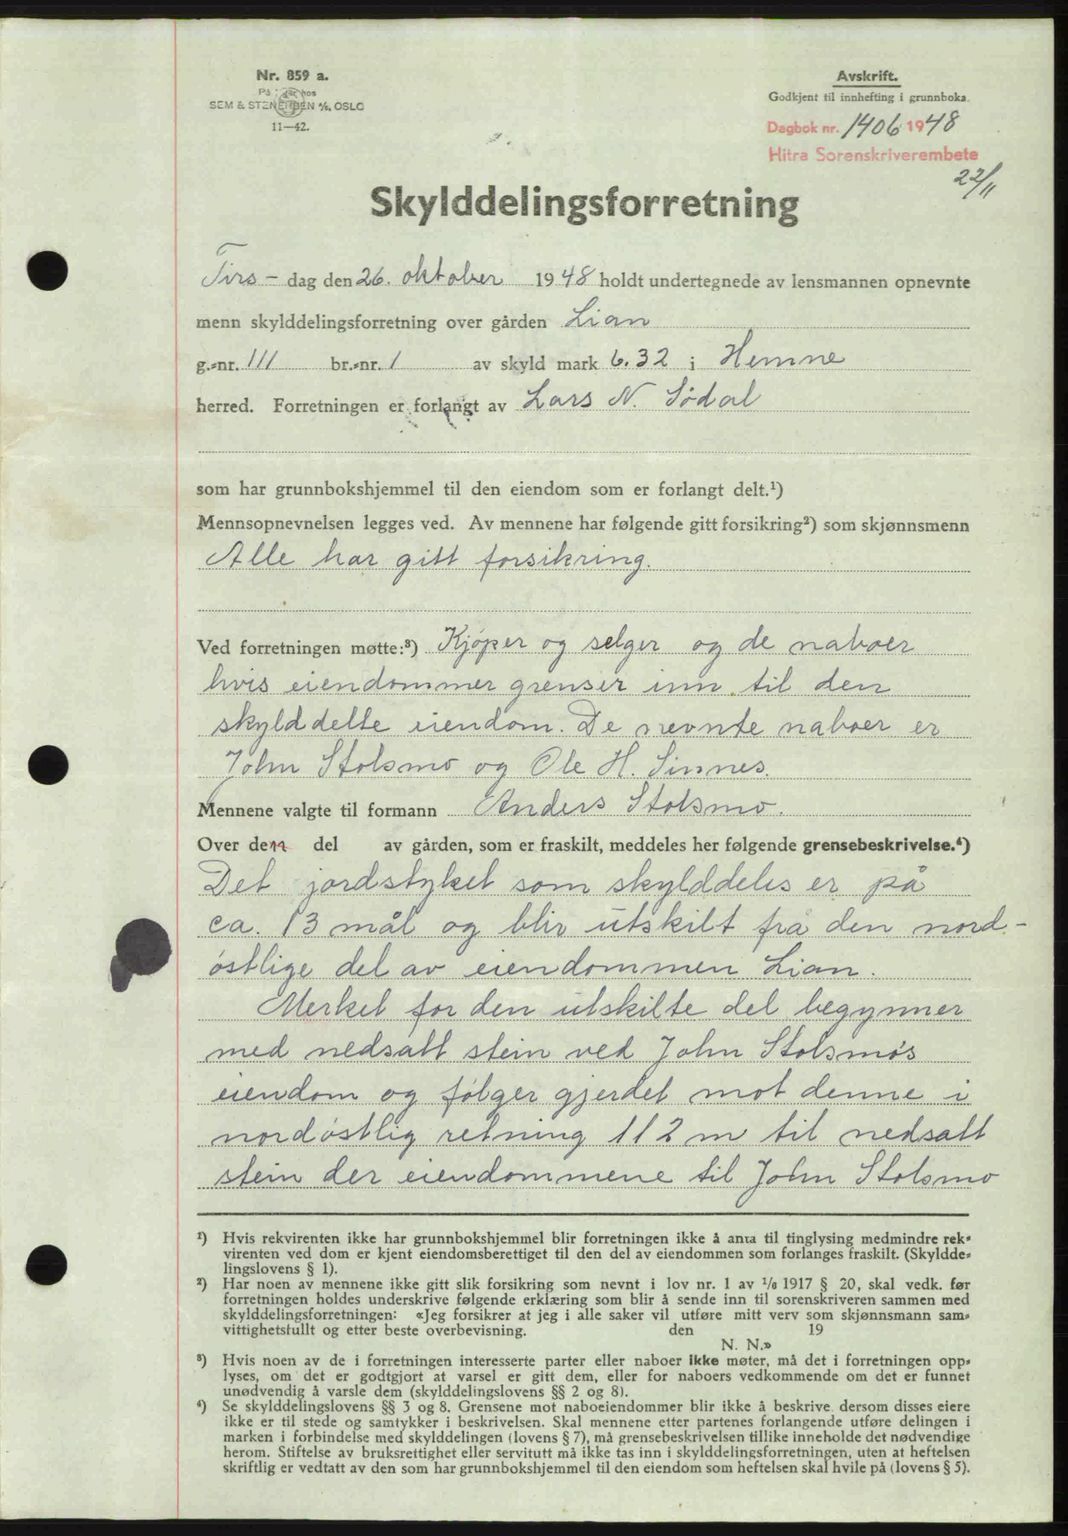 Nr. 859 a.
SEM & STENERSEN A/S, OSLO
11—42.
Avskrift.
Godkjent til innhefting i grunnboka.
Dagbok nr. 1406 1948
Hitra Sorenskriverembete
22/11
Skylddelingsforretning
Tirs- dag den 26. oktober 1948 holdt undertegnede av lensmannen opnevnte
menn skylddelingsforretning over gården Lian
g.=nr. 111 br.=nr. 1 av skyld mark 6.32 i Hemne
herred. Forretningen er forlangt av Lars N. Södal
som har grunnbokshjemmel til den eiendom som er forlangt delt.¹)
Mennsopnevnelsen legges ved. Av mennene har følgende gitt forsikring²) som skjønnsmenn
Alle har gitt forsikring.
Ved forretningen møtte:³) Kjöper og selger og de naboer
hvis eiendommer grenser inn til den
skylddelte eiendom. De nevnte naboer er
John Stolsmo og Ole H. Sinnes.
Mennene valgte til formann Anders Stolsmo.
Over den del av gården, som er fraskilt, meddeles her følgende grensebeskrivelse.⁴)
Det jordstyket som skylddeles er på
ca. 13 mål og blir utskilt fra den nord-
östlige del av eiendommen Lian.
Merket for den utskilte del begynner
med nedsatt stein ved John Stolsmo's
eiendom og fölger gjerdet mot denne i
nordöstlig retning 112 m til nedsatt
stein der eiendommene til John Stolsmo
¹) Hvis rekvirenten ikke har grunnbokshjemmel blir forretningen ikke å anta til tinglysing medmindre rek=
virenten ved dom er kjent eiendomsberettiget til den del av eiendommen som forlanges fraskilt. (Skyldde=
lingslovens § 1).
²) Har noen av mennene ikke gitt slik forsikring som nevnt i lov nr. 1 av 1/8 1917 § 20, skal vedk. før
forretningen holdes underskrive følgende erklæring som blir å sende inn til sorenskriveren sammen med
skylddelingsforretningen: «Jeg forsikrer at jeg i alle saker vil utføre mitt verv som skjønnsmann sam=
vittighetsfullt og etter beste overbevisning. den 19
N. N.»
³) Hvis noen av de i forretningen interesserte parter eller naboer ikke møter, må det i forretningen opp=
lyses, om det er godtgjort at varsel er gitt dem, eller for naboers vedkommende om det er funnet
unødvendig å varsle dem (skylddelingslovens §§ 2 og 8).
⁴) Se skylddelingslovens §§ 3 og 8. Grensene mot naboeiendommer blir ikke å beskrive dersom disses eiere
ikke er til stede og samtykker i beskrivelsen. Skal mennene etter partenes forlangende utføre delingen i
marken i forbindelse med skylddelingen (lovens § 7), må grensebeskrivelsen tillike inneholde det nødvendige
herom. Stiftelse av bruksrettighet eller servitutt må ikke tas inn i skylddelingsforretningen, uten at heftelsen
skriftlig er vedtatt av den som har grunnbokshjemmel til den eiendom som heftelsen skal hvile på (lovens § 5).